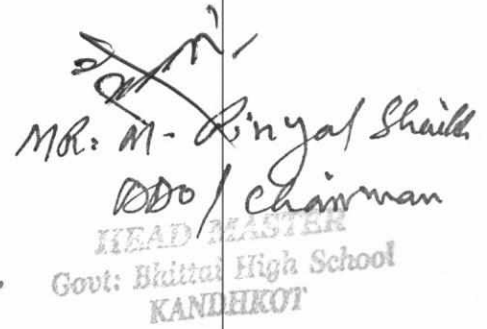 MR: M. Rinyal Shaikh
DDO / Chairman
HEAD MASTER
Govt: Bhittai High School
KANDHKOT